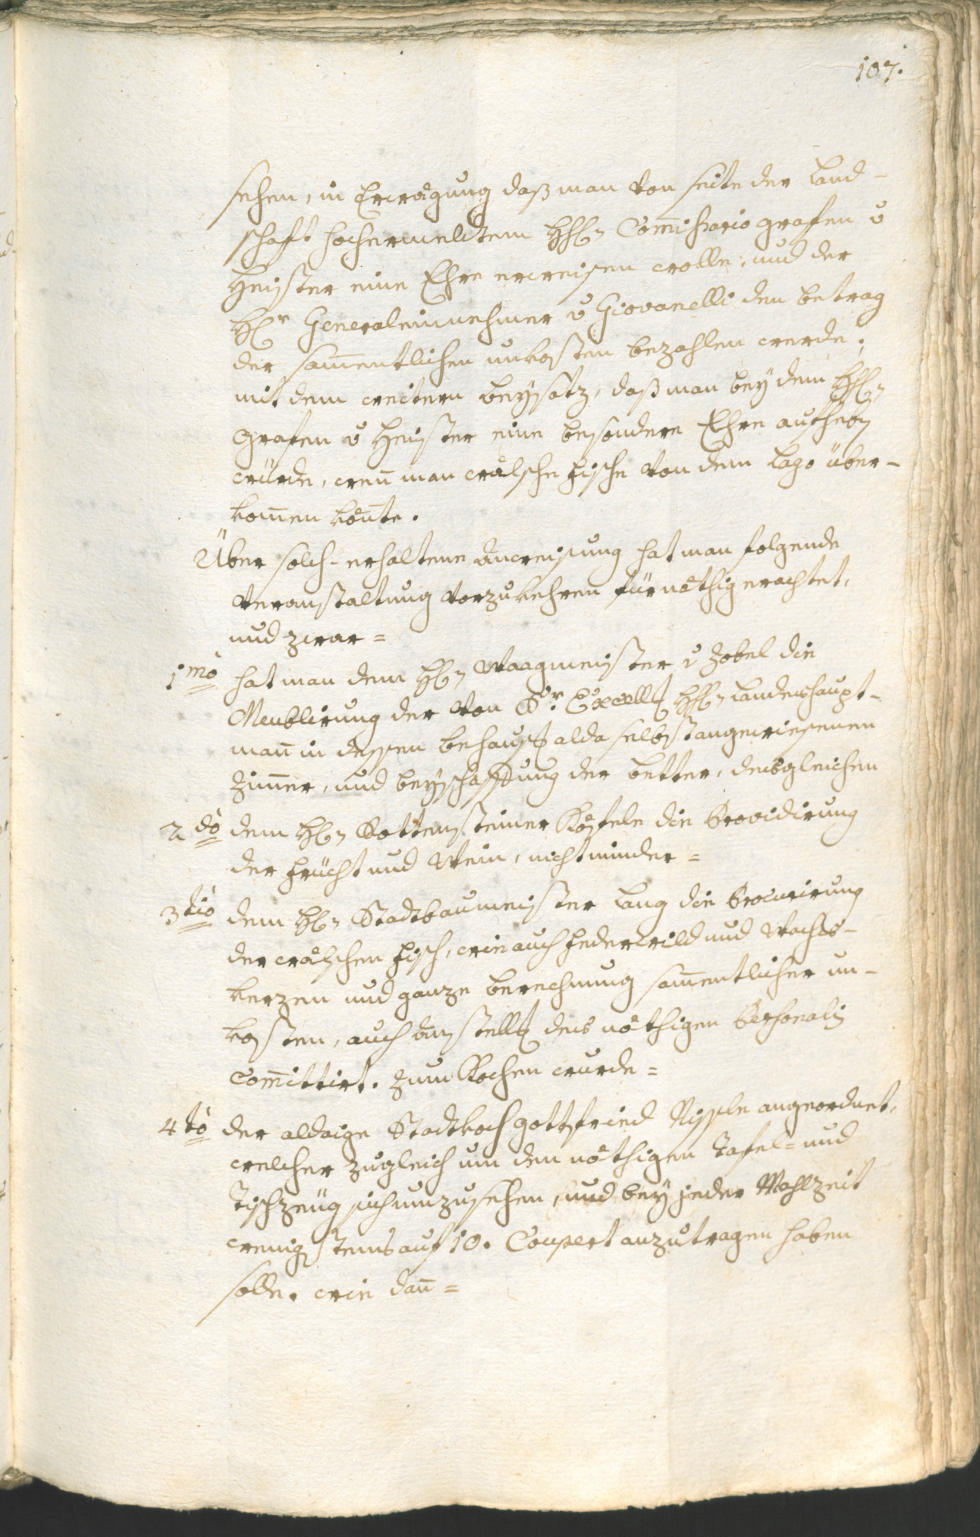 107.
sehen, in Erwägung daß man von seite der Land-
schaft hochermeldtem HH. Com̄issario grafen v
Heister eine Ehre erweisen wolle, und der
H. Generaleinnehmer v Giovanelli den betrag
der sam̄entlichen unkosten bezahlen werde;
mit dem weitern beysatz, daß man bey dem HH.
Grafen v Heister eine besondere Ehre aufheben
würde, wen̄ man wälsche fische von dem Lago über-
kom̄en kön̄te.
Über solch-erhaltene anweisung hat man folgende
veranstaltung vorzukehren für nöthig erachtet,
und zwar =
1mo hat man dem H. Waagmeister v Zobel die
Meublirung der von Sr. Excell. HH. Landeshaupt-
man̄ in dessen behausg alda selbst angewiesenen
Zim̄er, und beyschaffung der better, deßgleichen
2do dem H. Rottensteiner Köstele die Providirung
der frücht und Wein, nicht minder =
3tio dem H. Stadtbaumeister Lang die Procurirung
der wälschen fisch, wie auch federwild und Wachs-
kerzen und ganze berechnung sam̄entlicher un-
kosten, auch anstellg des nöthigen Personalis
com̄ittirt. zum Kochen wurde =
4to der aldaige Stadtkoch gottfried Nissele angeordnet,
welcher zugleich um den nöthigen Tafel- und
Tischzeug sich umzusehen, und bey jeder Mahlzeit
wenigstens auf 10. Couvert anzutragen haben
solle. wie dan̄ =